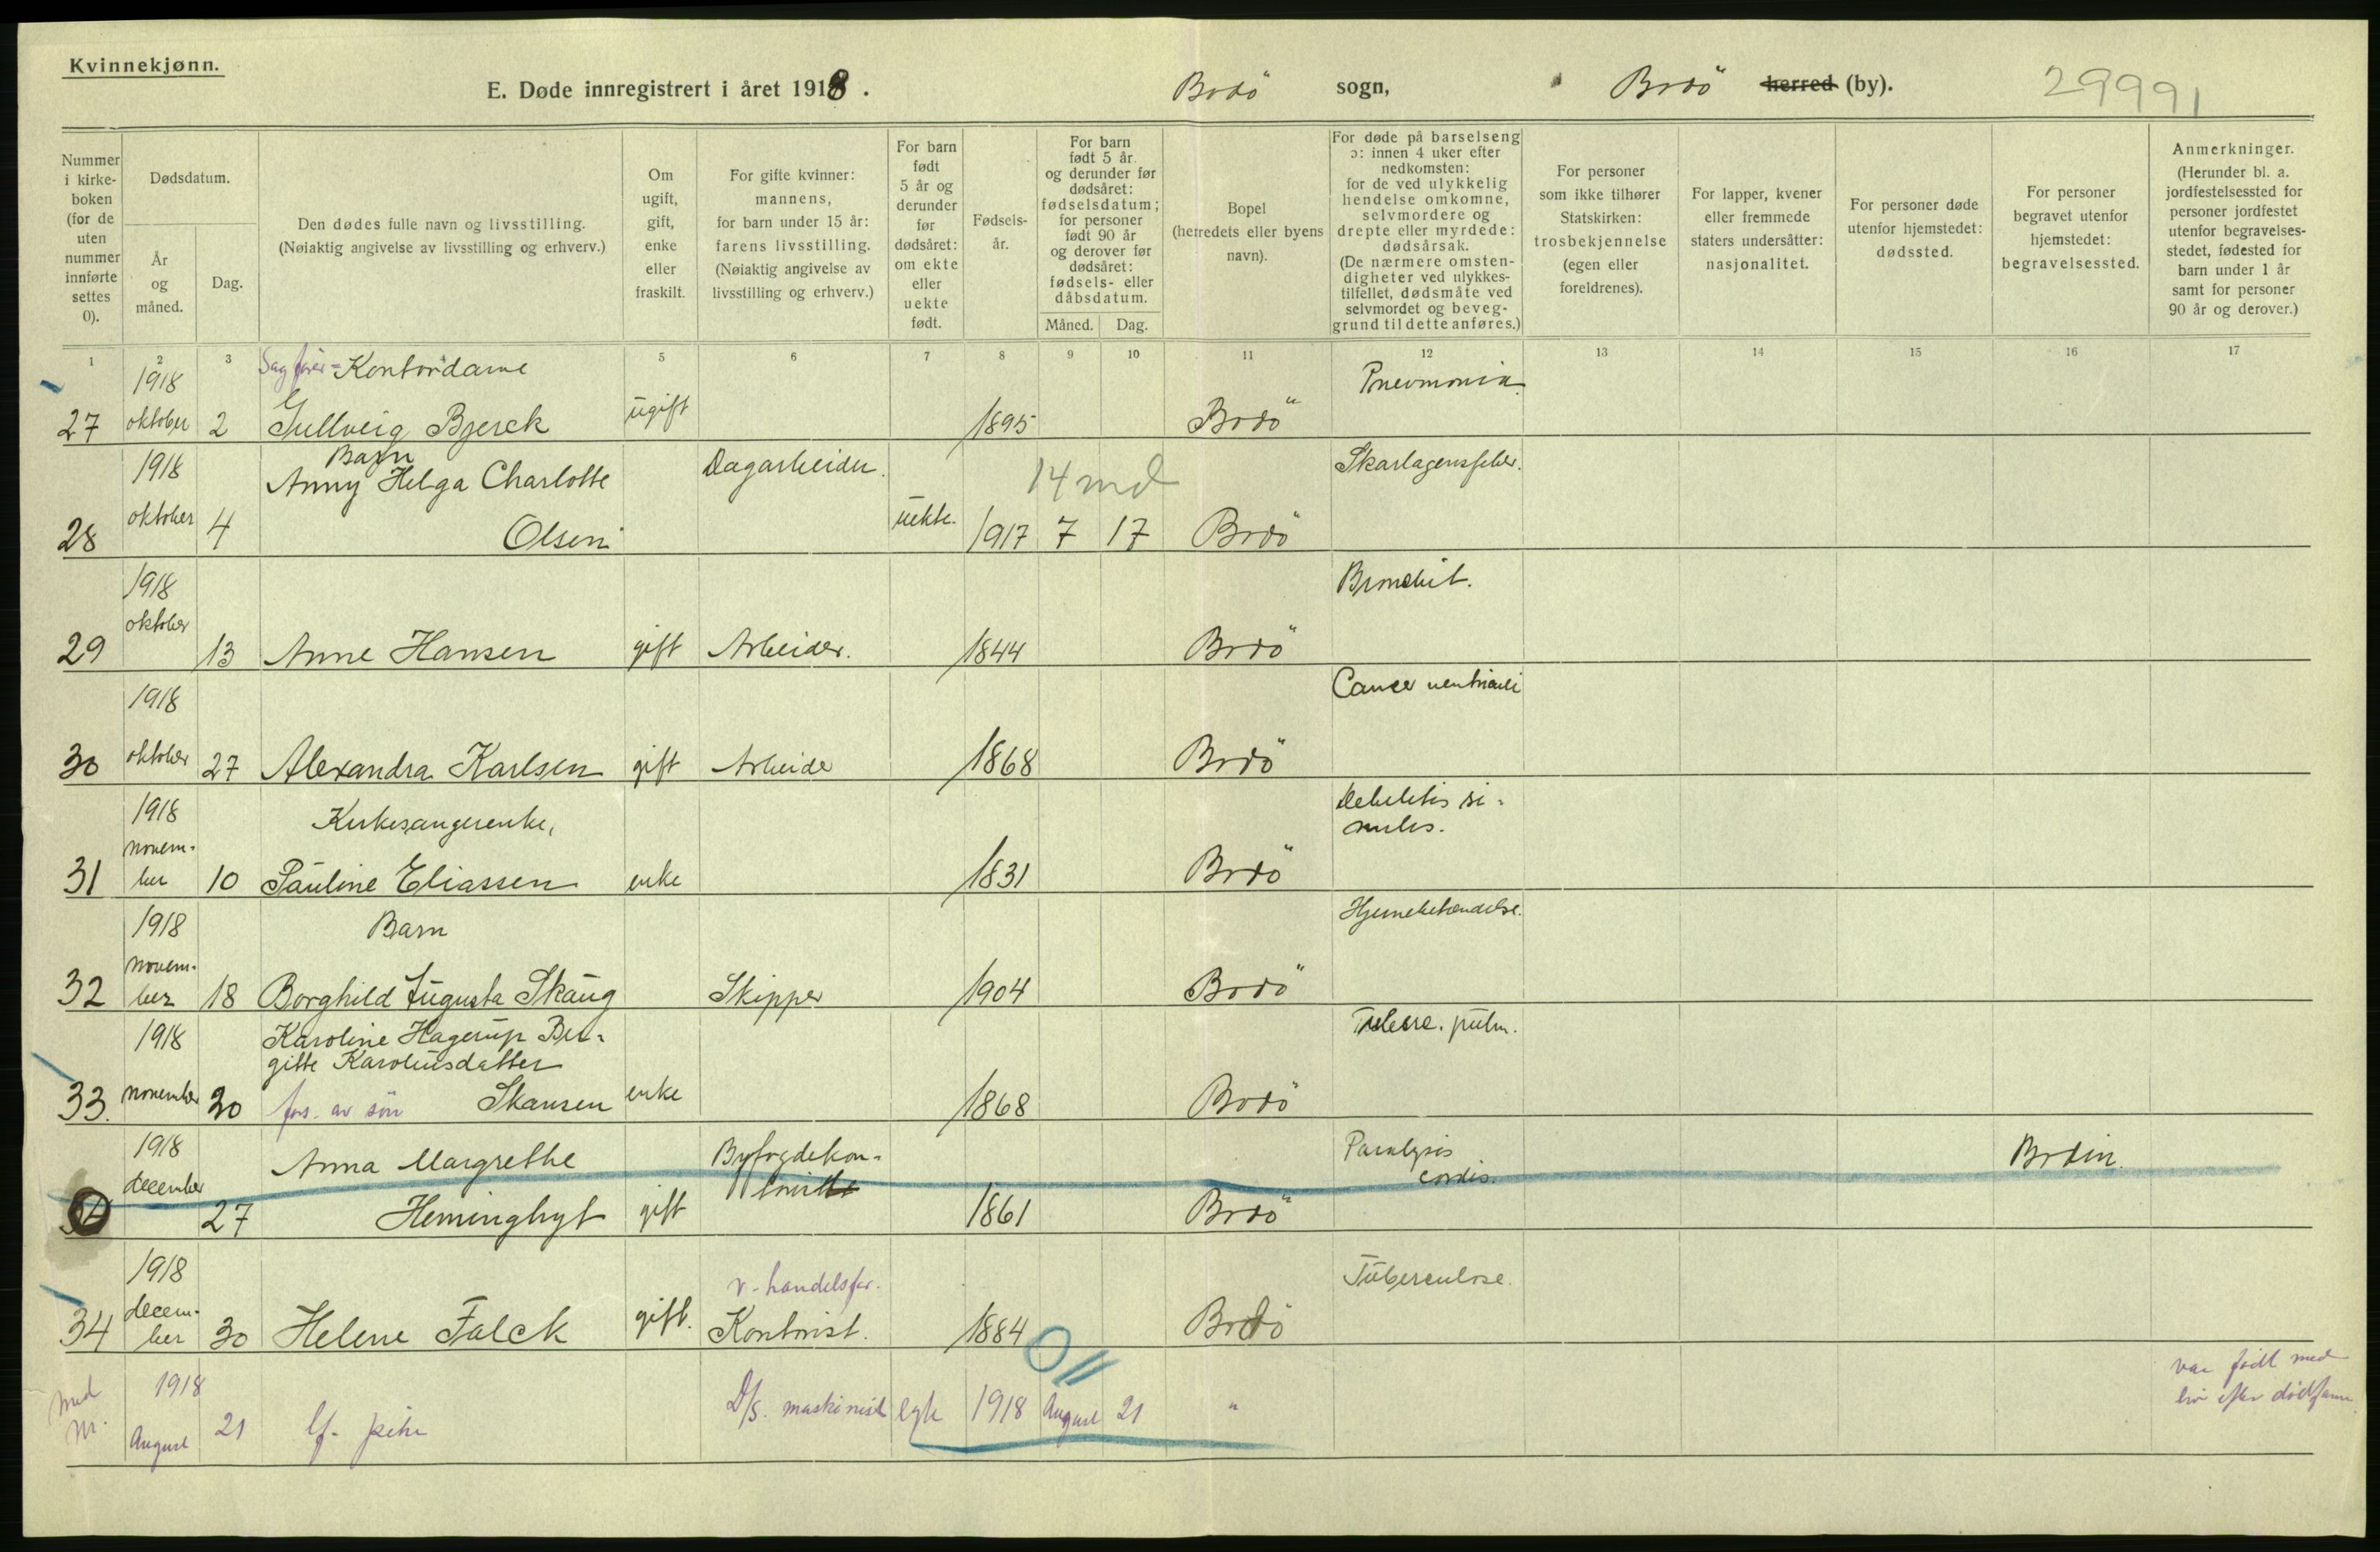 Kvinnekjønn.
E. Døde innregistrert i året 1918. Bodö sogn, Bodö herred (by). 29991
Nummer i kirkeboken (for de uten nummer innførte settes 0).
Dødsdatum.
År og måned.
Dag.
Den dødes fulle navn og livsstilling.
(Nøiaktig angivelse av livsstilling og erhverv.)
Om ugift, gift, enke eller fraskilt.
For gifte kvinner: mannens, for barn under 15 år: farens livsstilling.
(Nøiaktig angivelse av livsstilling og erhverv.)
For barn født 5 år og derunder før dødsåret: om ekte eller uekte født.
Fødselsår.
For barn født 5 år og derunder før dødsåret: fødselsdatum; for personer født 90 år og derover før dødsåret: fødsels- eller dåbsdatum.
Måned. Dag.
Bopel (herredets eller byens navn).
For døde på barselseng ɔ: innen 4 uker efter nedkomsten: for de ved ulykkelig hendelse omkomne, selvmordere og drepte eller myrdede: dødsårsak.
(De nærmere omstendigheter ved ulykkestilfellet, dødsmåte ved selvmordet og beveggrund til dette anføres.)
For personer som ikke tilhører Statskirken: trosbekjennelse (egen eller foreldrenes).
For lapper, kvener eller fremmede staters undersåtter: nasjonalitet.
For personer døde utenfor hjemstedet: dødssted.
For personer begravet utenfor hjemstedet: begravelsessted.
Anmerkninger.
(Herunder bl. a. jordfestelsessted for personer jordfestet utenfor begravelsesstedet, fødested for barn under 1 år samt for personer 90 år og derover.)
1 2 3 5 6 7 8 9 10 11 12 13 14 15 16 17
1918 Sagfører=Kontordame Pnevmonia.
27 oktober 2 Gullveig Bjerck ugift 1895 Bodö
1918 Barn
Anny Helga Charlotte Dagarbeider. 14 md Skarlagensfeber.
28 oktober 4 Olsen uekte. 1917 7 17 Bodö
1918 Bronchit.
29 oktober 13 Anne Hansen gift Arbeider. 1844 Bodö
1918 Cancer ventriculi
30 oktober 27 Alexandra Karlsen gift Arbeide 1868 Bodö
1918 Kirkesangerenke, Debilitis si-
niles.
31 november 10 Pauline Eliassen enke 1831 Bodö
1918 Barn Hjernebetændelse.
32 november 18 Borghild Augusta Skaug Skipper 1904 Bodö
1918 Karoline Hagerup Ber-
gitte Karoliusdatter Tubere. pulm.
33. november 20 fors. av sön Skansen enke 1868 Bodö
1918 Anna Margrethe Byfogdekon- Paralysis cordis. Bodin
34 december 27 Heminghyt gift 1861 Bodö
1918 v. handelsfor. Tuberculose.
34 december 30 Helene Falck gift. Kontorist. 1884 Bodö
011
1918 var född med
liv efter dödsfam
med nr. August 21 lf. pike D/S. maskinist egte 1918 August 21 "